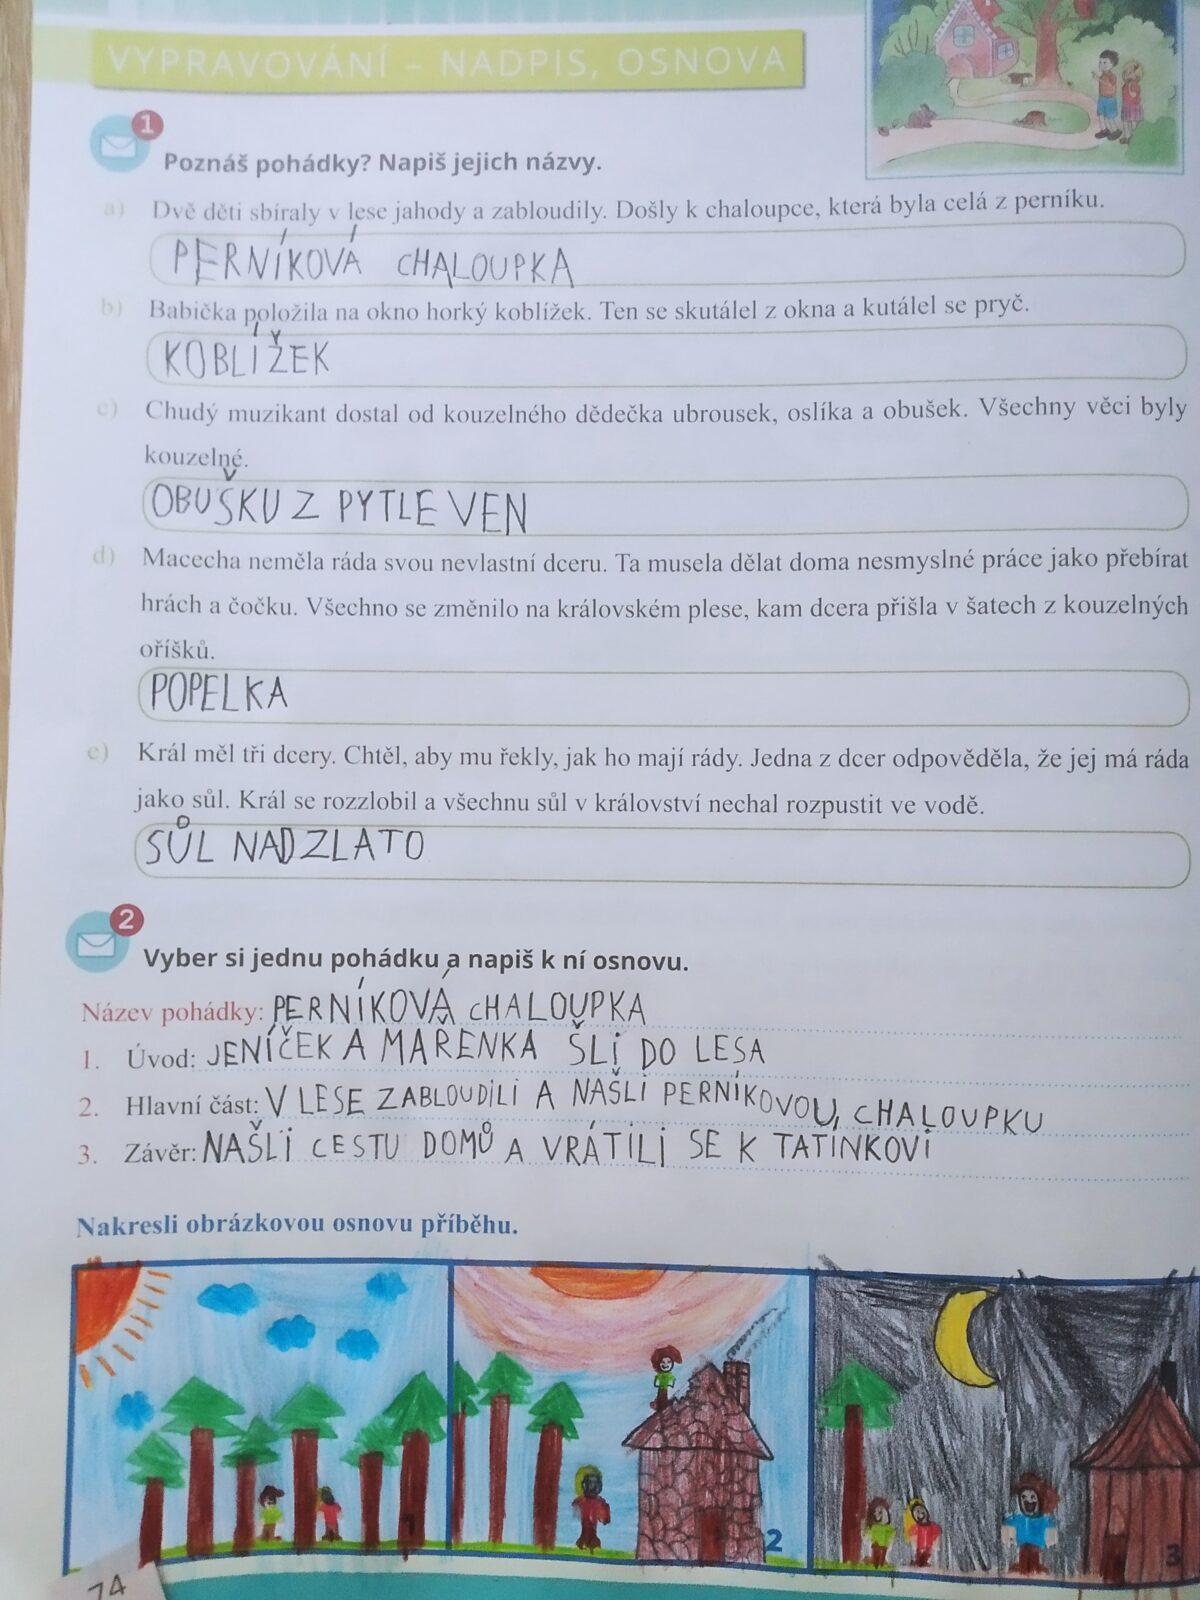 VYPRAVOVÁNÍ – NADPIS, OSNOVA
1
Poznáš pohádky? Napiš jejich názvy.
a) Dvě děti sbíraly v lese jahody a zabloudily. Došly k chaloupce, která byla celá z perníku.
PERNÍKOVÁ CHALOUPKA
b) Babička položila na okno horký koblížek. Ten se skutálel z okna a kutálel se pryč.
KOBLÍŽEK
c) Chudý muzikant dostal od kouzelného dědečka ubrousek, oslíka a obušek. Všechny věci byly
kouzelné.
OBUŠKU Z PYTLE VEN
d) Macecha neměla ráda svou nevlastní dceru. Ta musela dělat doma nesmyslné práce jako přebírat
hrách a čočku. Všechno se změnilo na královském plese, kam dcera přišla v šatech z kouzelných
oříšků.
POPELKA
e) Král měl tři dcery. Chtěl, aby mu řekly, jak ho mají rády. Jedna z dcer odpověděla, že jej má ráda
jako sůl. Král se rozzlobil a všechnu sůl v království nechal rozpustit ve vodě.
SŮL NAD ZLATO
2
Vyber si jednu pohádku a napiš k ní osnovu.
Název pohádky: PERNÍKOVÁ CHALOUPKA
1. Úvod: JENÍČEK A MAŘENKA ŠLI DO LESA
2. Hlavní část: V LESE ZABLOUDILI A NAŠLI PERNÍKOVOU CHALOUPKU
3. Závěr: NAŠLI CESTU DOMŮ A VRÁTILI SE K TATINKOVI
Nakresli obrázkovou osnovu příběhu.
1
2
3
74